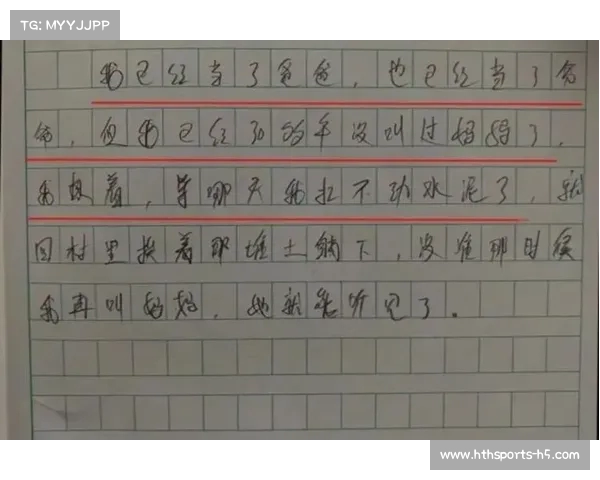 TG: MYYJJPP
我已经当了爸爸，也已经当了爷
爷，但我已经30的年没叫过妈妈了，
我想着，等哪天我扛不动水泥了，就
回村里挨着那堆土躺下，没准那时候
我再叫妈妈，她就能听见了。
www.hthsports-h5.com